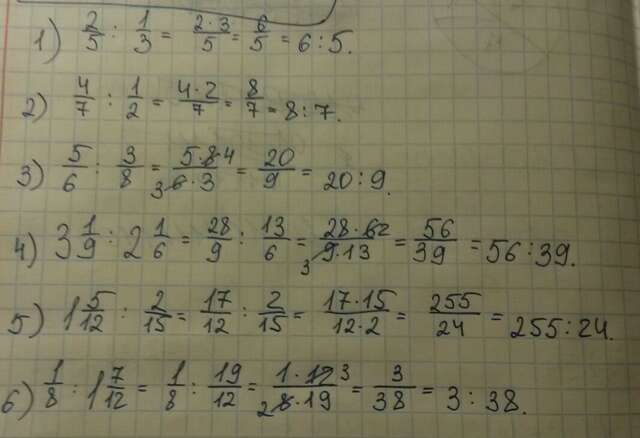 1) 2/5 : 1/3 = 2·3/5 = 6/5 = 6:5.
2) 4/7 : 1/2 = 4·2/7 = 8/7 = 8:7.
3) 5/6 : 3/8 = 5·8 4/3 6·3 = 20/9 = 20:9.
4) 3 1/9 : 2 1/6 = 28/9 : 13/6 = 28·6 2/3 9·13 = 56/39 = 56:39.
5) 1 5/12 : 2/15 = 17/12 : 2/15 = 17·15/12·2 = 255/24 = 255:24.
6) 1/8 : 1 7/12 = 1/8 : 19/12 = 1·12 3/2 8·19 = 3/38 = 3:38.